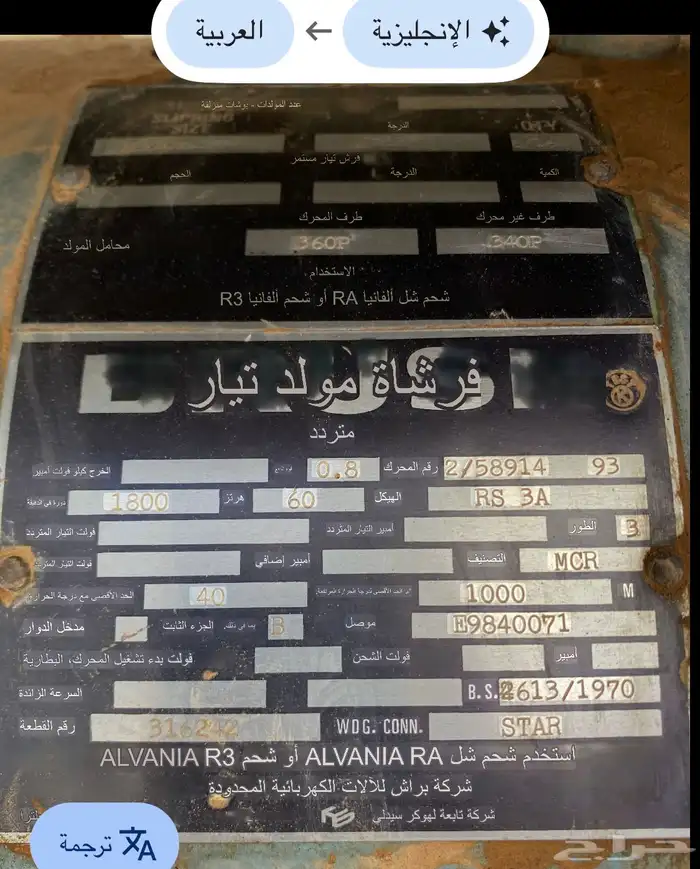 العربية ← الإنجليزية
عدد المولدات - بوشات منزلقة
الدرجة QTY
فرش تيار مستمر
الحجم الدرجة الكمية
طرف المحرك طرف غير محرك
محامل المولد 360P 340P
الاستخدام.
شحم شل ألفانيا RA أو شحم ألفانيا R3
فرشاة مولد تيار
متردد
الخرج كيلو فولت أمبير 0.8 رقم المحرك 2/58914 93
دورة في الدقيقة 1800 هرتز 60 الهيكل RS 3A
فولت التيار المتردد أمبير التيار المتردد الطور 3
فولت التيار المتردد أمبير إضافي التصنيف MCR
الحد الأقصى مع درجة الحرارة 40 1000 M
مدخل الدوار الجزء الثابت بما في ذلك B موصل E9840071
فولت بدء تشغيل المحرك، البطارية فولت الشحن أمبير
السرعة الزائدة B.S. 2613/1970
رقم القطعة 316242 WDG. CONN. STAR
استخدم شحم شل ALVANIA RA أو شحم ALVANIA R3
شركة براش للآلات الكهربائية المحدودة
شركة تابعة لهوكر سيدلي
ترجمة
حراج